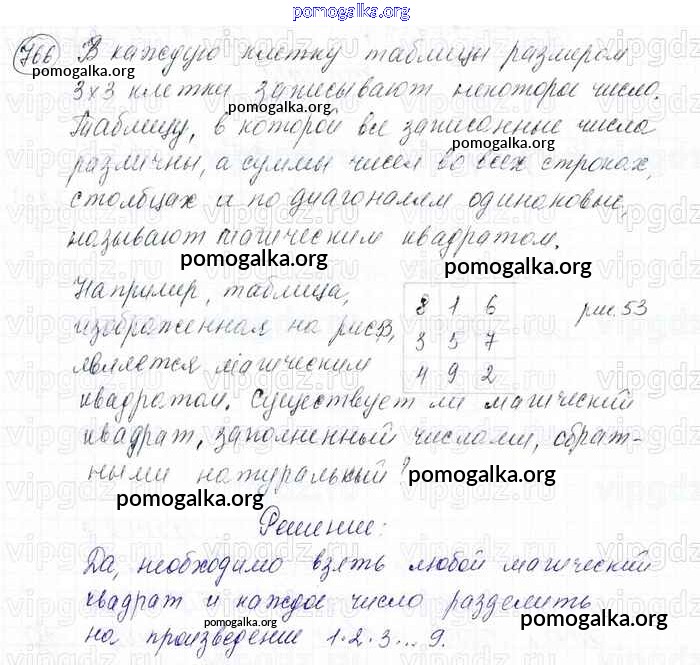 pomogalka.org
766 В каждую клетку таблицы размером
pomogalka.org pomogalka.org
3×3 клетки записывают некоторые числа.
Таблицу, в которой все записанные числа
различны, а суммы чисел во всех строках,
столбцах и по диагоналям одинаковые,
называют магическим квадратом.
pomogalka.org pomogalka.org
Например, таблица, 8 1 6 рис. 53
изображенная на рис. 53, 3 5 7
является магическим 4 9 2
квадратом. Существует ли магический
квадрат, заполненный числами, обрат-
ными натуральным?
pomogalka.org pomogalka.org
Решение:
pomogalka.org
Да, необходимо взять любой магический
квадрат и каждое число разделить
pomogalka.org pomogalka.org
на произведение 1·2·3...9.